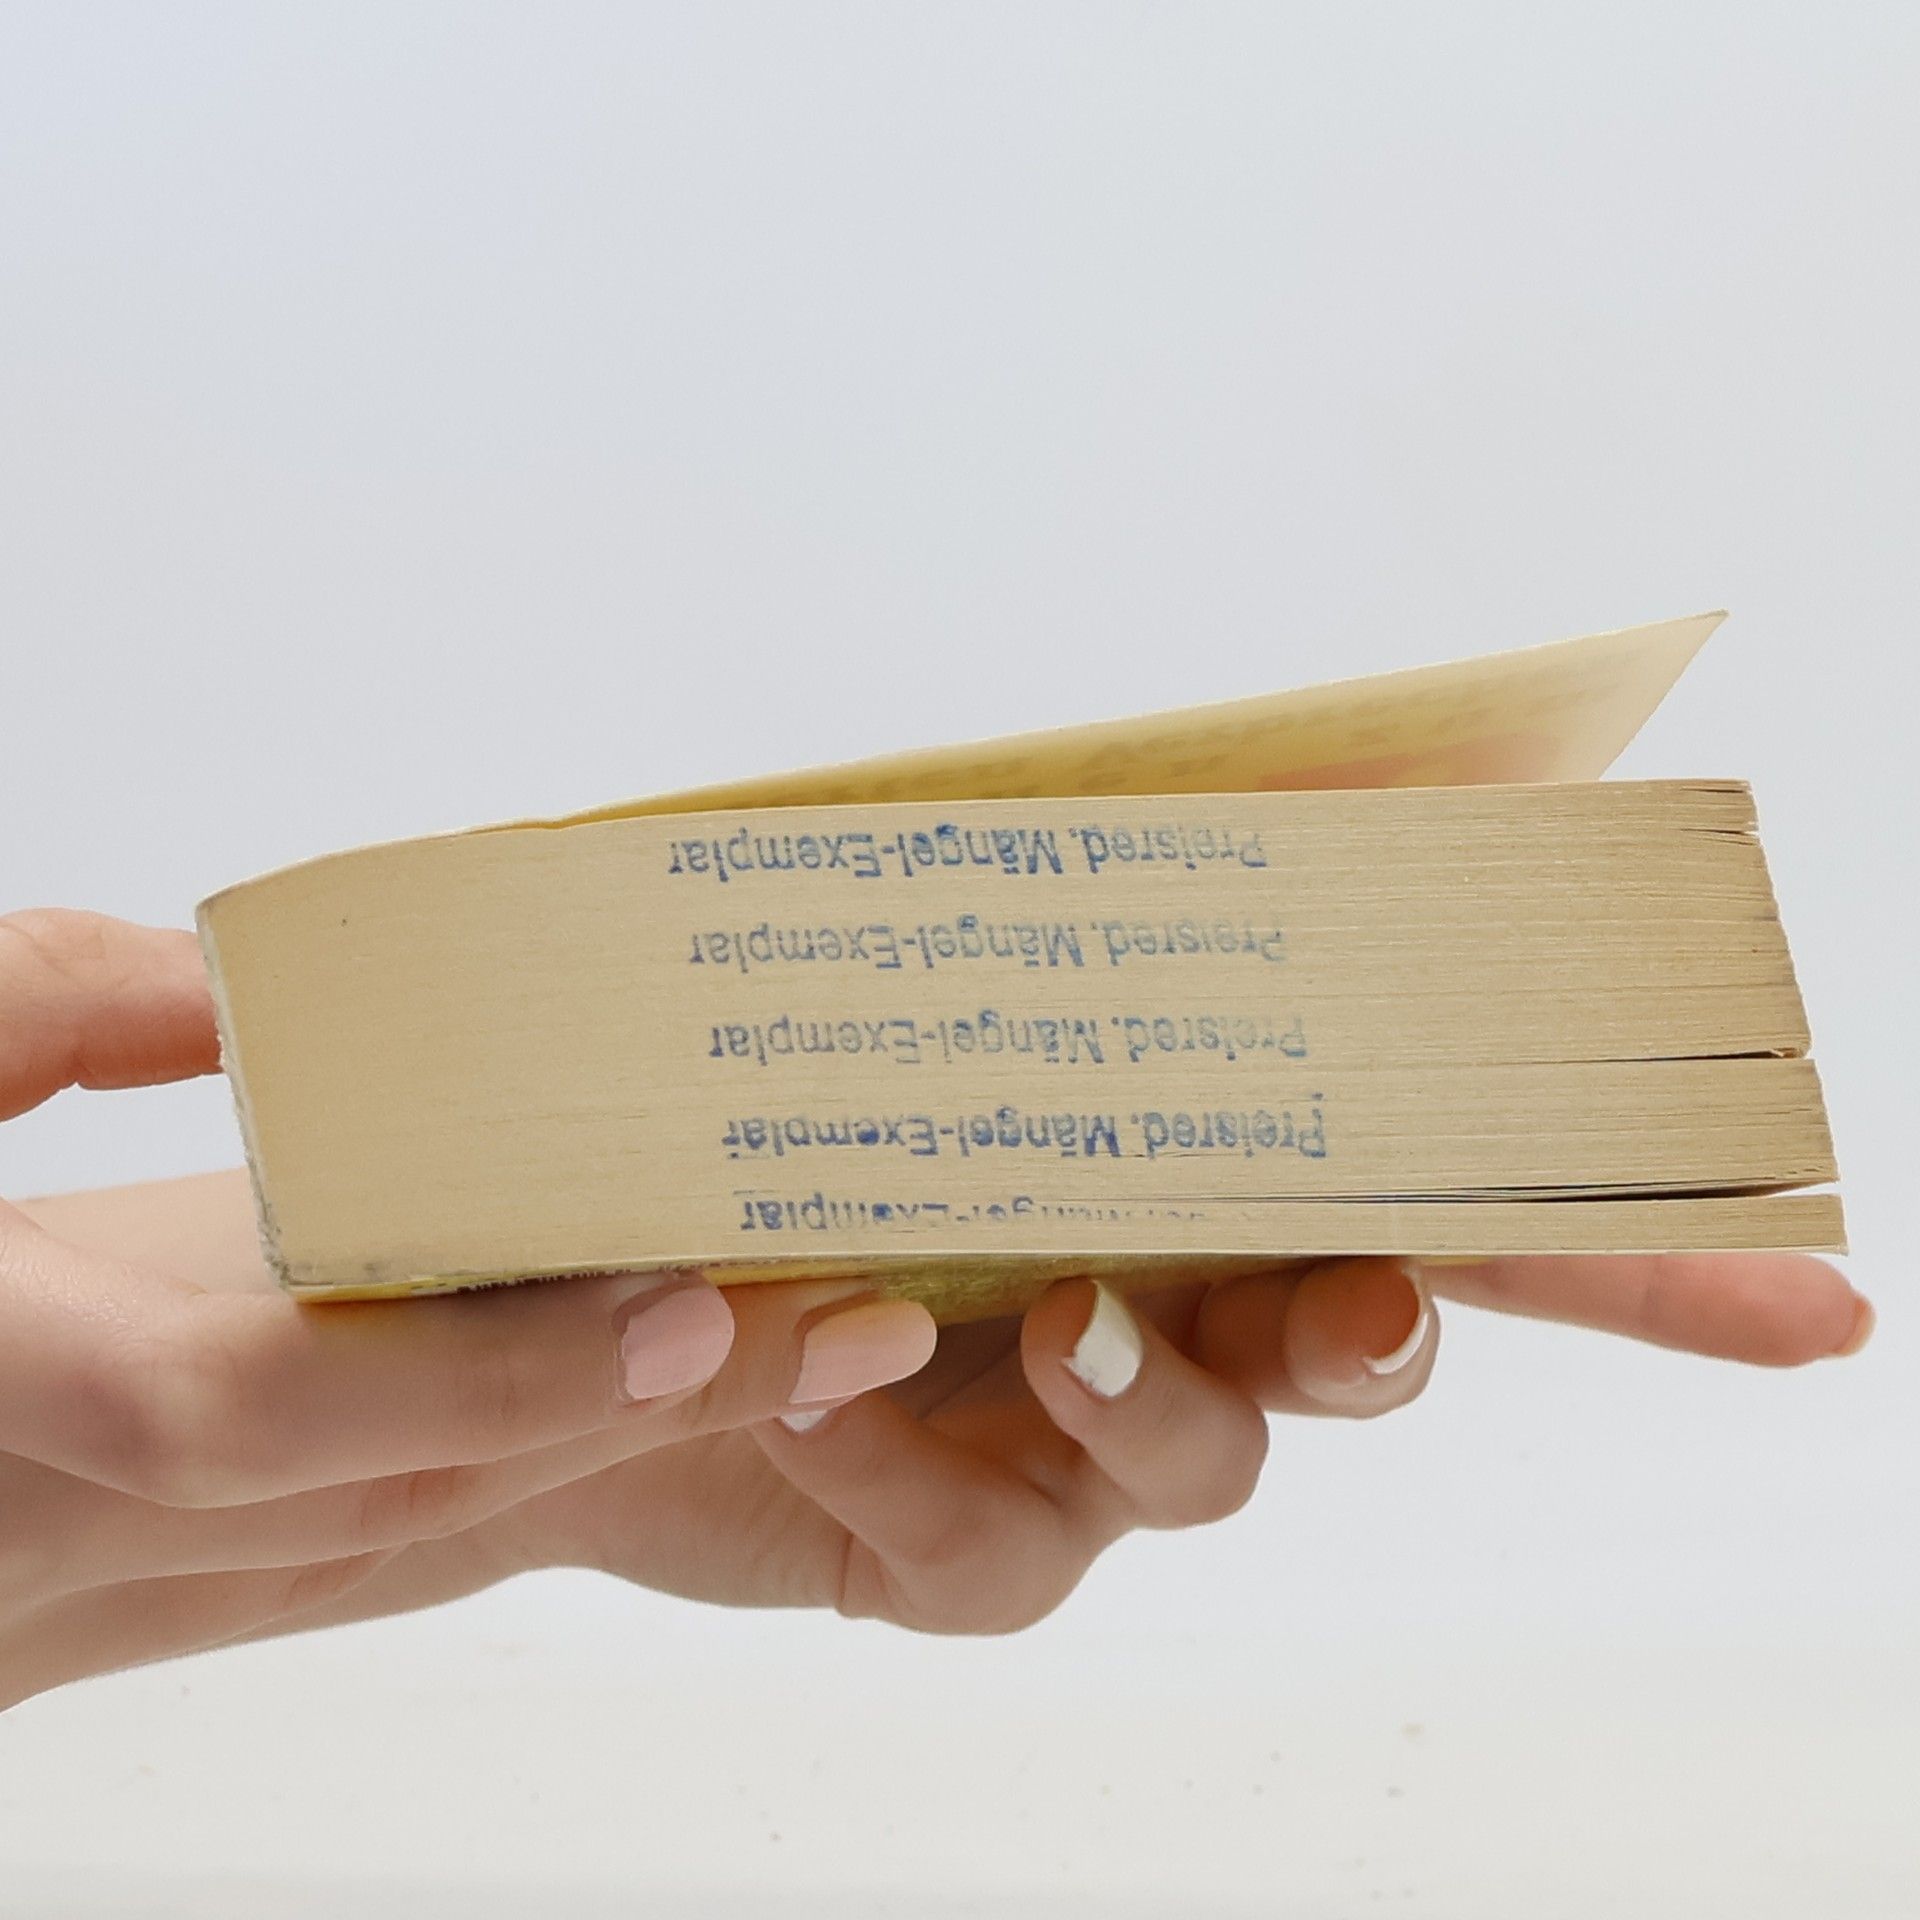 Preisred. Mängel-Exemplar
Preisred. Mängel-Exemplar
Preisred. Mängel-Exemplar
Preisred. Mängel-Exemplar
Mängel-Exemplar